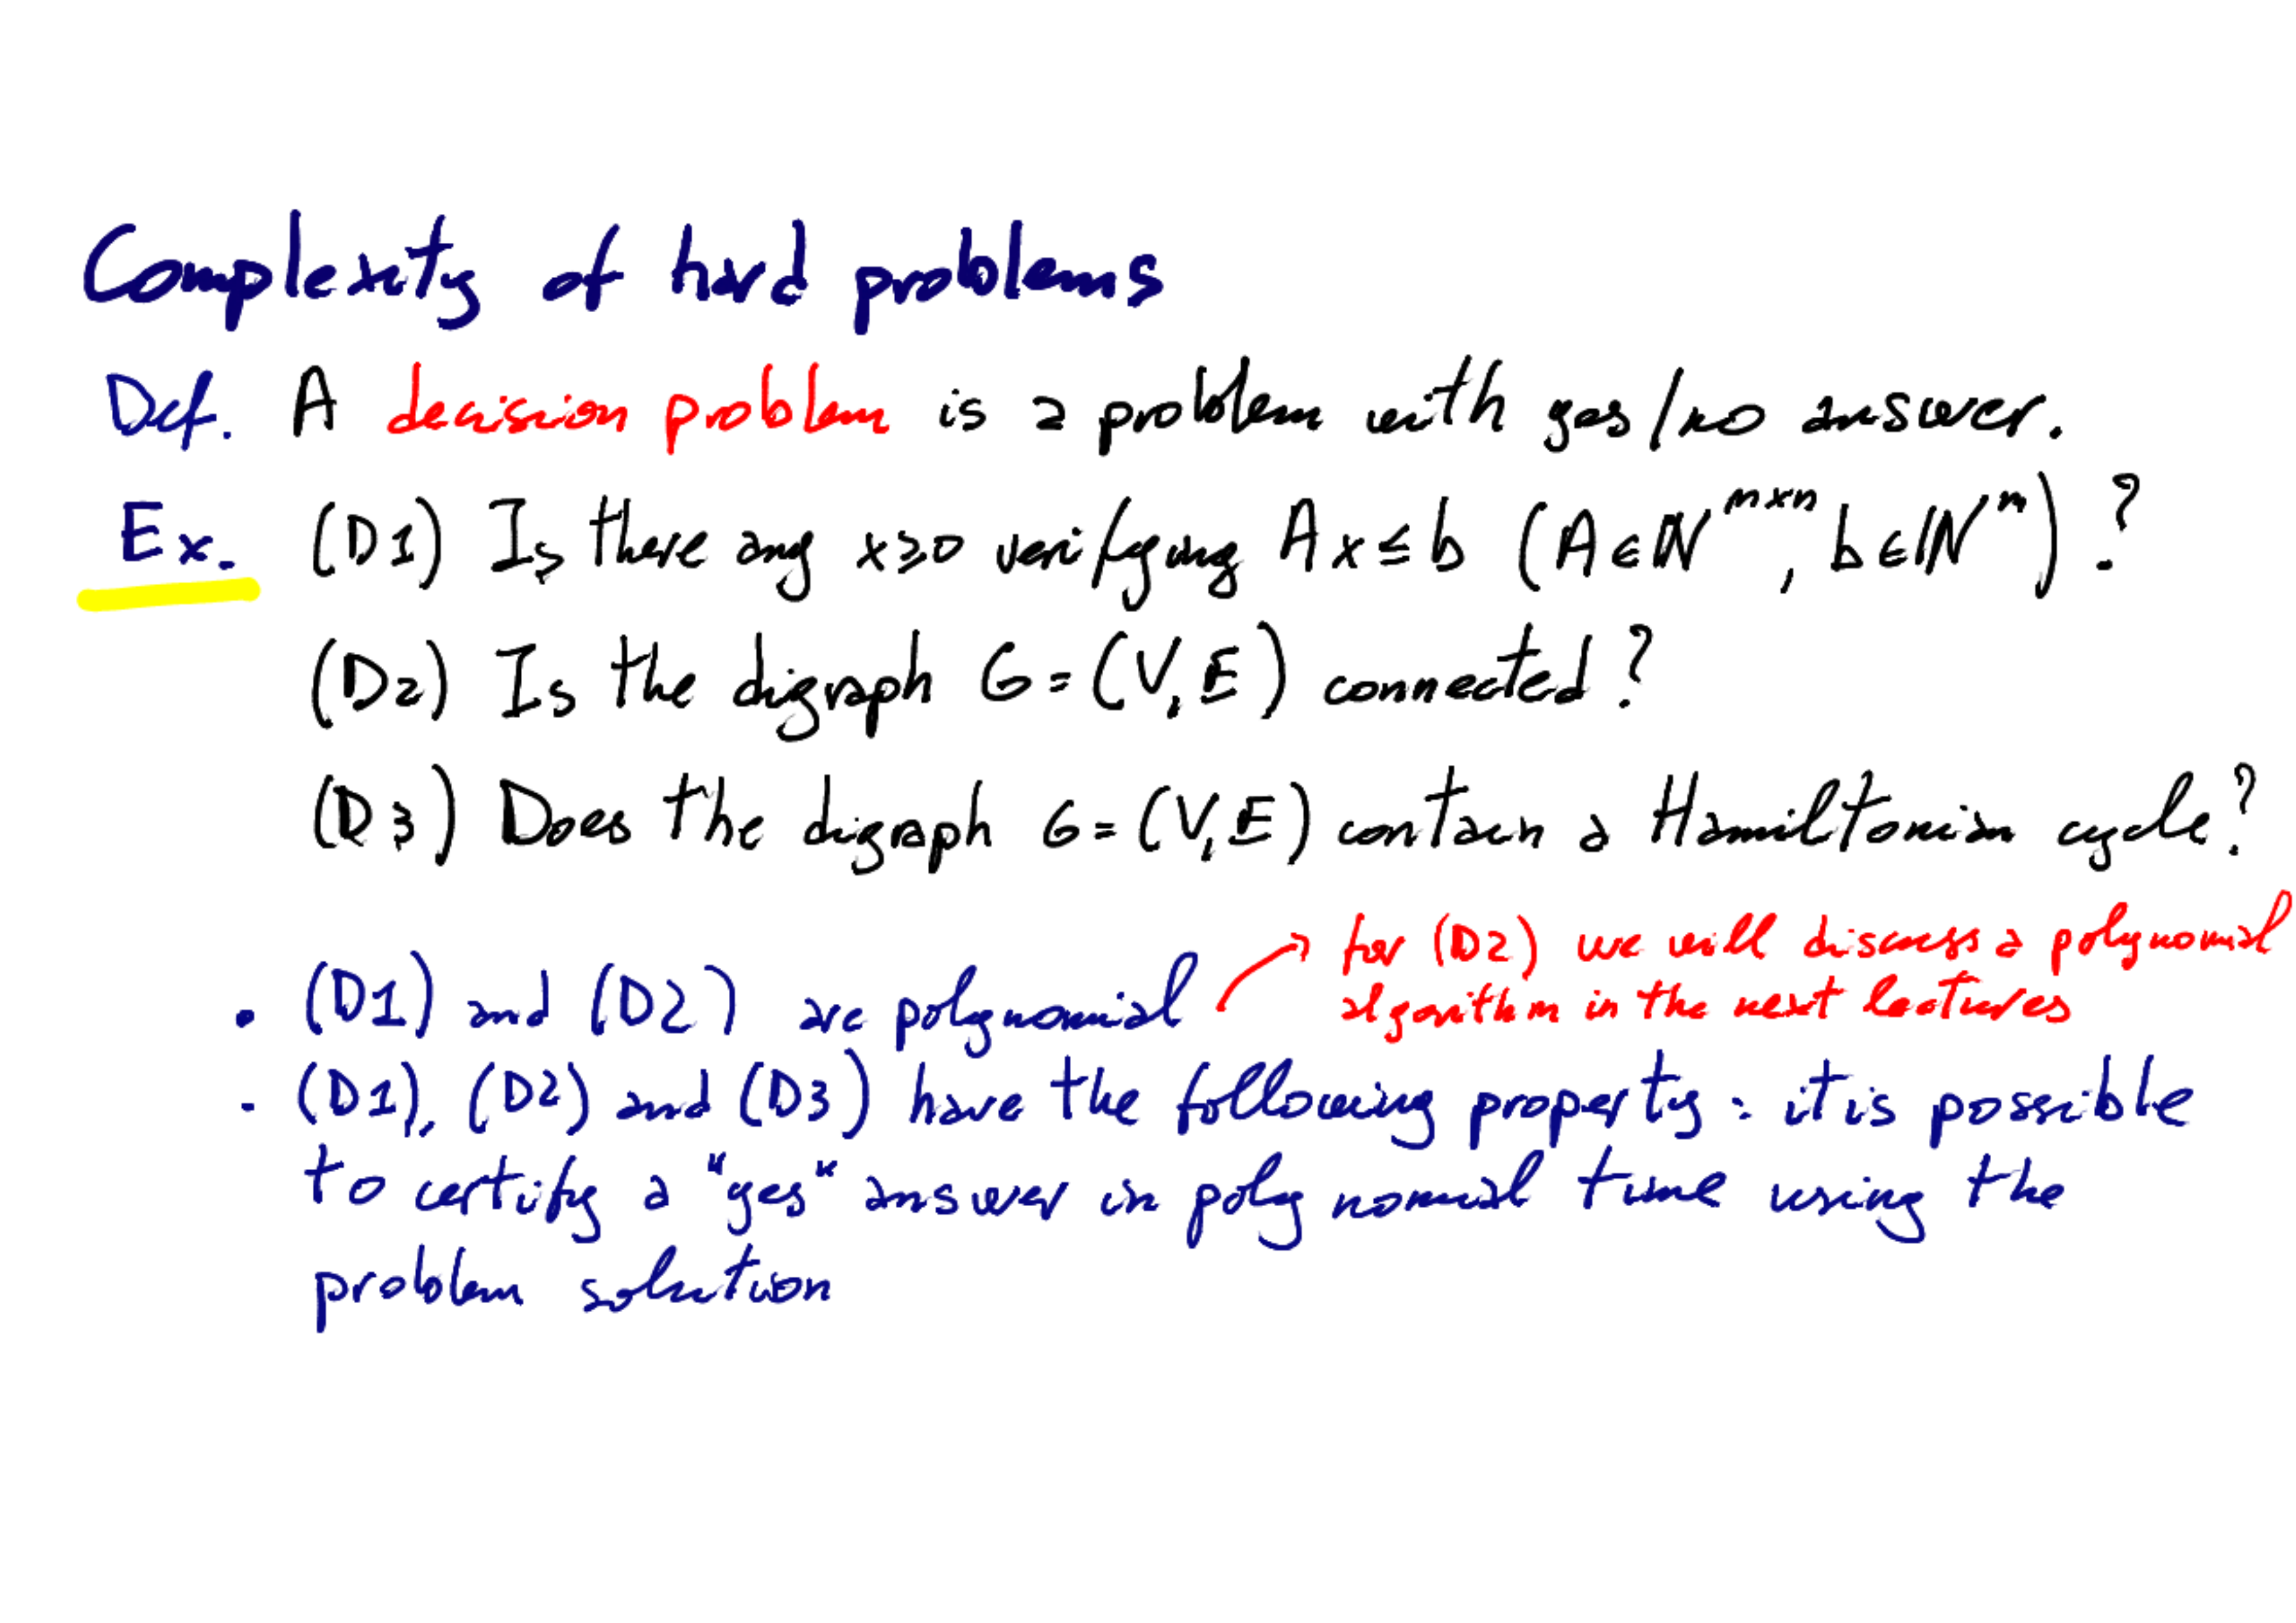 Complexity of hard problems
Def. A decision problem is a problem with yes/no answer.
Ex. (D1) Is there any x≥0 verifying Ax≤b (A∈ℕ^{m×n}, b∈ℕ^m)?
(D2) Is the digraph G=(V,E) connected?
(D3) Does the digraph G=(V,E) contain a Hamiltonian cycle?
for (D2) we will discuss a polynomial
algorithm in the next lectures
• (D1) and (D2) are polynomial
• (D1), (D2) and (D3) have the following property: it is possible
to certify a "yes" answer in polynomial time using the
problem solution